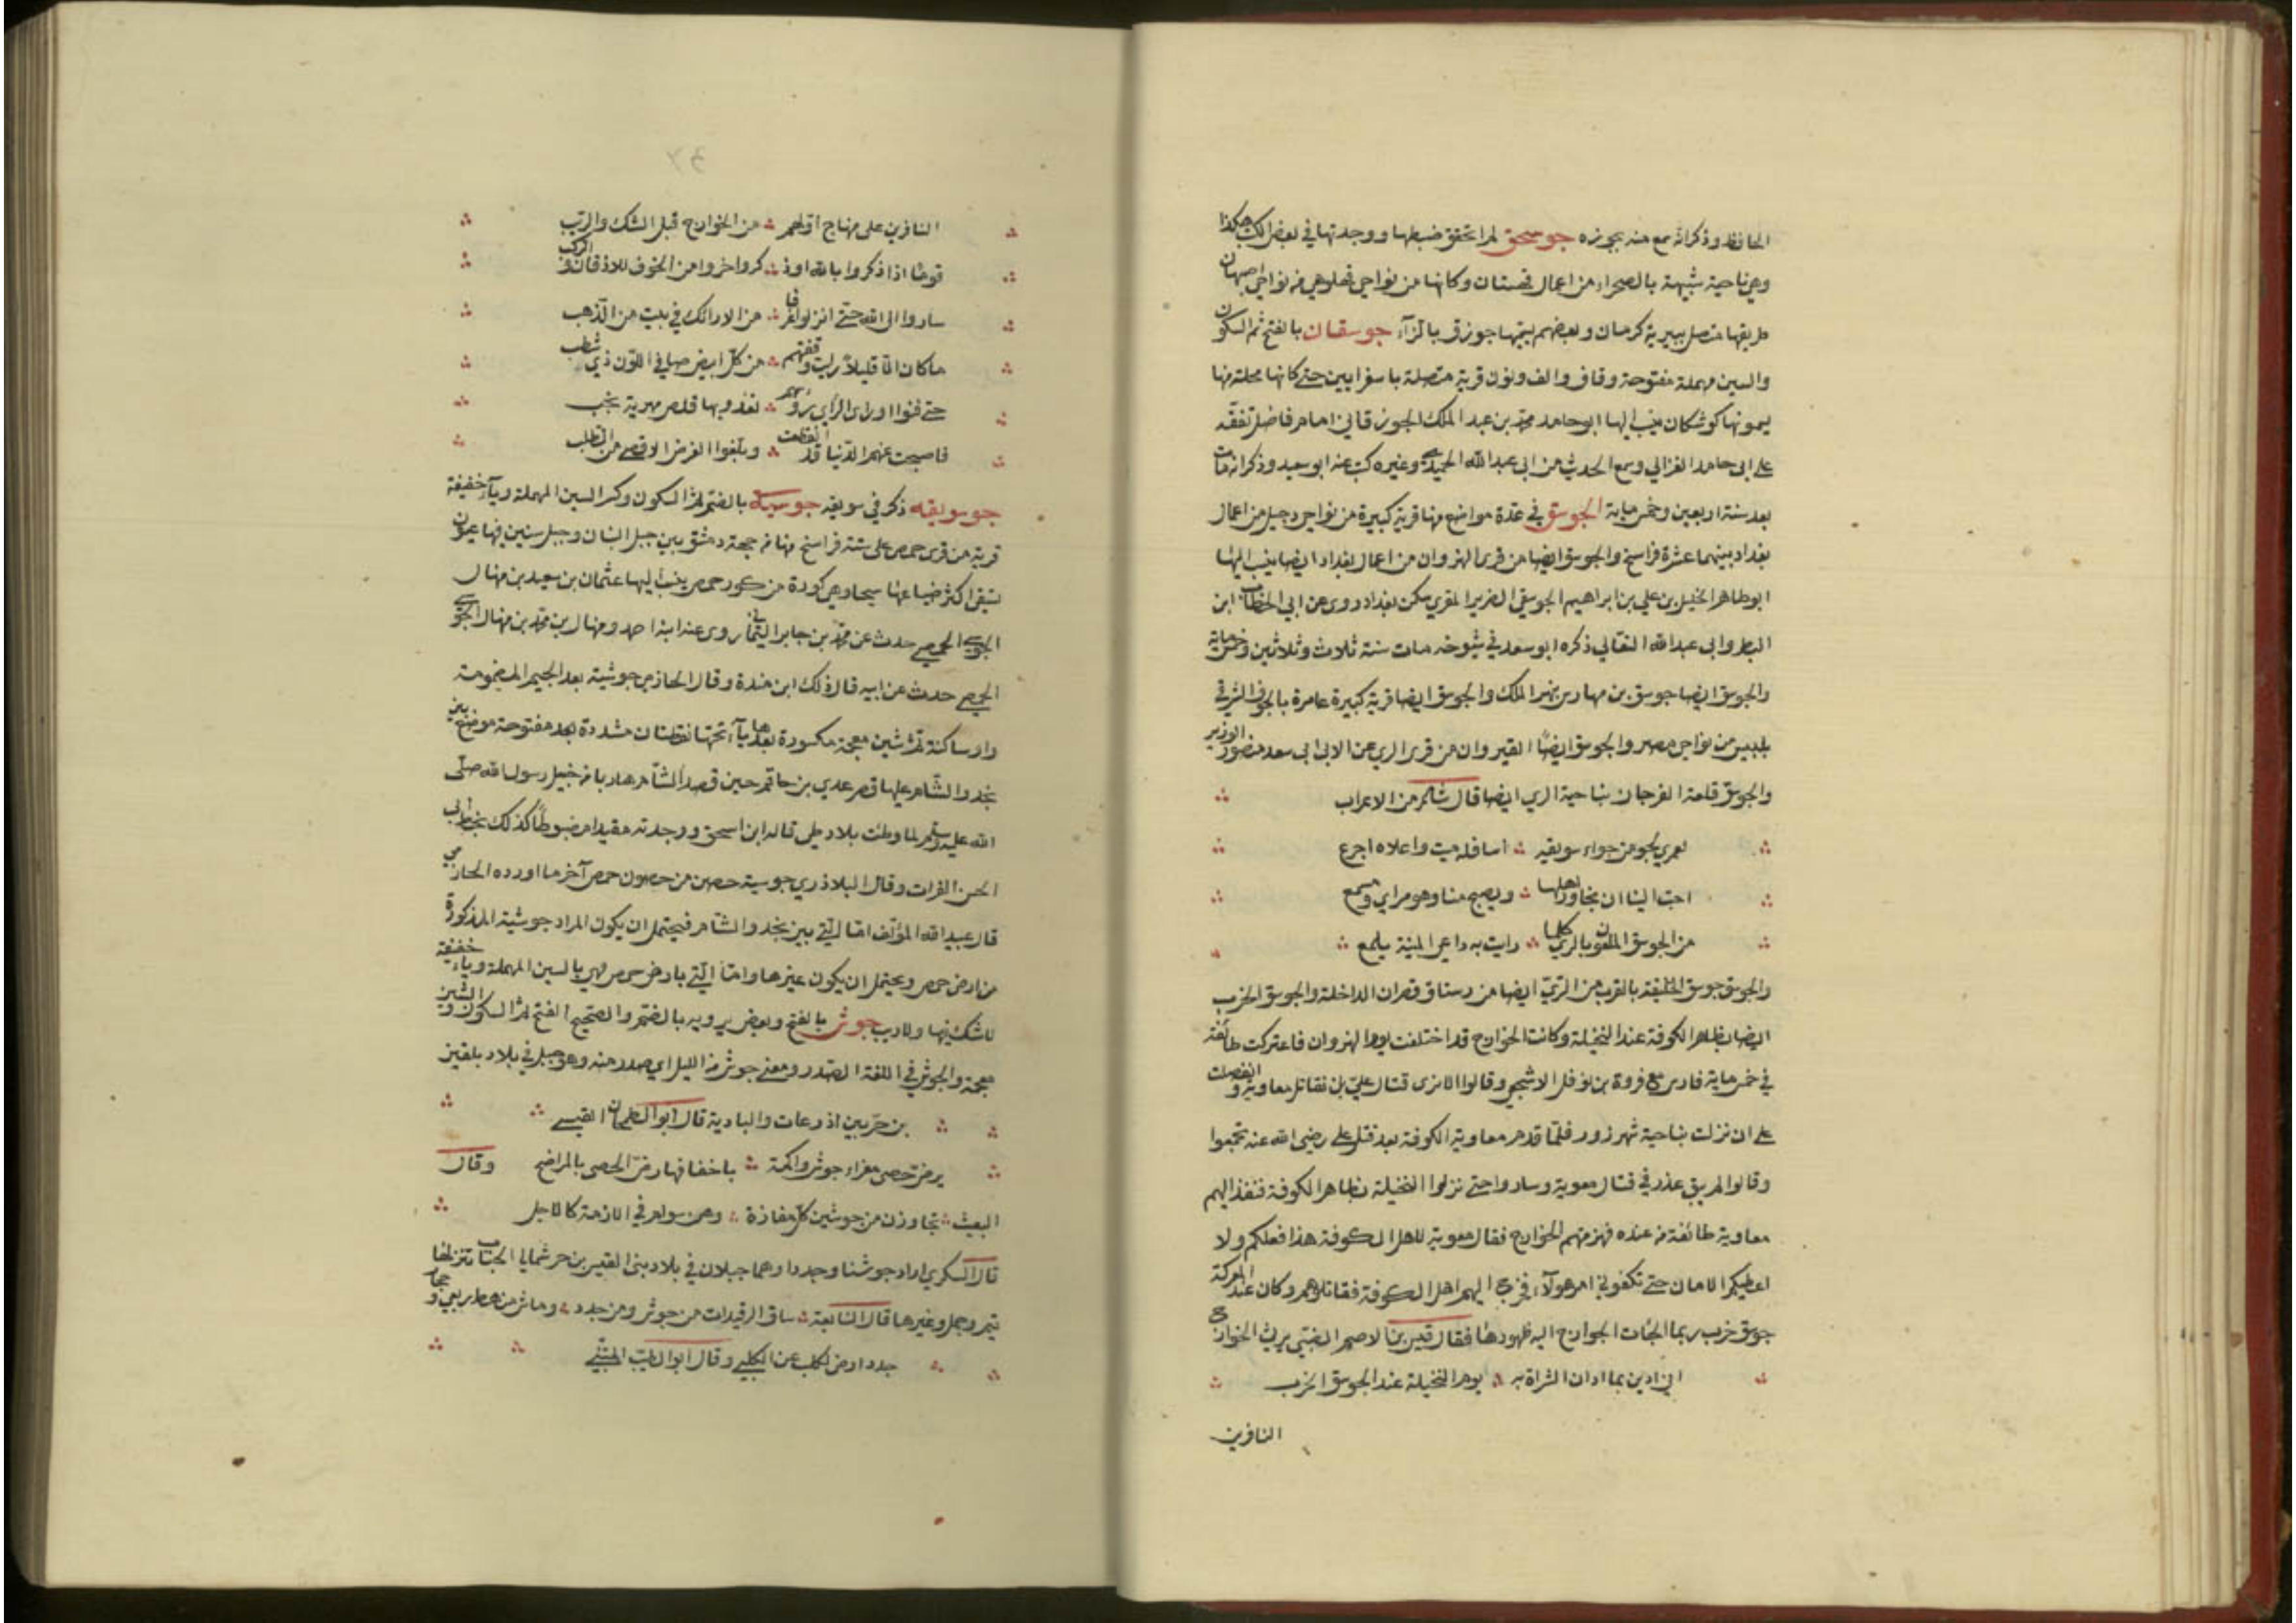 الحافظ وذكر انه سمع منه بجوزه جوسحق لم اتحقق ضبطها ووجدتها في بعض الكتب هكذا
وهي ناحية شبيهة بالصحراء من اعمال قهستان وكانها من نواحي فهلو هي من نواحي اصبهان
طريقها متصل ببرية كرمان وبعضهم يسميها جوزق بالزآء جوسقان بالفتح ثم السكون
والسين مهملة مفتوحة وقاف والف ونون قرية متصلة باسفرايين حتى كانها محلة منها
يسمونها كوشكان ينسب اليها ابو حامد محمد بن عبد الملك الجوزقاني امام فاضل تفقه
على ابي حامد الغزالي وسمع الحديث من ابي عبد الله الحميدي وغيره كتب عنه ابو سعيد وذكر انه مات
بعد سنة اربعين وخمس ماية الجوسق في عدة مواضع منها قرية كبيرة من نواحي دجيل من اعمال
بغداد بينهما عشرة فراسخ والجوسق ايضا من قرى النهروان من اعمال بغداد ايضا ينسب اليها
ابو طاهر الخليل بن علي بن ابراهيم الجوسقي الضرير المقري سكن بغداد روى عن ابي الخطاب ابن
البطر وابي عبد الله النعالي ذكره ابو سعد في شيوخه مات سنة ثلاث وثلاثين وخمس ماية
والجوسق ايضا جوسق بن مهارس بنهر الملك والجوسق ايضا قرية كبيرة عامرة بالجوف الشرقي
بلبيس من نواحي مصر والجوسق ايضًا القيروان من قرى الري عن الابي ابي سعد منصور الوزير
والجوسق قلعة الفرجان بناحية الري ايضا قال شاعر من الاعراب
لعمري لجو من جواء سويقه اسافله ميت واعلاه اجرع
احب الينا ان نجاور اهلها ويصبح منا وهو مراي ومسمع
من الجوسق الملعون بالري كلما رايت به داعي المنية يلمع
والجوسق جوسق الخليفة بالقرب من الري ايضا من رستاق قصران الداخلة والجوسق الخرب
ايضا بظاهر الكوفة عند النخيلة وكانت الخوارج قد اختلفت يوم النهروان فاعتزلت طائفة
في خمس ماية فارس مع فروة بن نوفل الاشجعي وقالوا لا نرى قتال علي بل نقاتل معاوية وانفصلت
على ان نزلت بناحية شهرزور فلما قدم معاوية الكوفة بعد قتل علي رضي الله عنه تجمعوا
وقالوا لم يبق عذر في قتال معوية وساروا حتى نزلوا النخيلة بظاهر الكوفة فنفذ اليهم
معاوية طائفة من عنده فهزمتهم الخوارج فقال معوية لاهل الكوفة هذا فعلكم ولا
اعطيكم الامان حتى تكفوني امر هولآء فخرج اليهم اهل الكوفة فقاتلوهم وكان عند المعركة
جوسق خرب ربما الجات الخوارج اليه ظهورها فقال قيس بن الاصم الضبي يرثي الخوارج
اني ادين بما دان الشراة به يوم النخيلة عند الجوسق الخرب
النافرين
النافرين على منهاج اولهم من الخوارج قبل الشك والريب
قومًا اذا ذكروا بالله او ذكروا خروا من الخوف للاذقان والركب
ساروا الى الله حتى انزلوا غرفا من الارائك في بيت من الذهب
ما كان الا قليلاً ريث وقفتهم من كل ابيض صافي اللون ذي شطب
حتى فنوا وراى الراي رؤسهم تغدو بها قلص مهرية نجب
فاصبحت عنهم الدنيا قد انقطعت وبلغوا الغرض الاقصى من الطلب
جوسويقه ذكر في سويقه جوسيه بالضم ثم السكون وكسر السين المهملة وياء خفيفة
قرية من قرى حمص على ستة فراسخ منها من جهة دمشق بين جبل لبنان وجبل سنير فيها عيون
تسقى اكثر ضياعها سيحا وهي كورة من كور حمص ينسب اليها عثمان بن سعيد بن منهال
الجوسي الحمصي حدث عن محمد بن جابر اليماني روى عنه ابنه احمد ومنهال بن محمد بن منهال الجوسي
الحمصي حدث عن ابيه قال ذلك ابن مندة وقال الحازمي جوشية بعد الجيم المضمومة
واو ساكنة ثم شين معجمة مكسورة بعدها يآء تحتها نقطتان مشددة بعد مفتوحة موضع بين
نجد والشام عليها قصر عدي بن حاتم حين قصد الشام هاربا من خيل رسول الله صلى
الله عليه وسلم لما وطئت بلاد طي قاله ابن اسحق ووجدته مقيدا مضبوطًا كذلك بخط ابي
الحسن الفرات وقال البلاذري جوسية حصن من حصون حمص آخر ما اورده الحازمي
قال عبيد الله المؤلف اما التي بين نجد والشام فيحتمل ان يكون المراد جوشية المذكورة
من ارض حمص ويحتمل ان يكون غيرها واما التي بارض حمص فهي بالسين المهملة وياء خفيفة
لا شك فيها ولا ريب جوش بالفتح وبعض يرويه بالضم والصحيح الفتح ثم السكون والشين
معجمة والجوش في اللغة الصدر ومعنى جوش من الليل اي صدر منه وهو جبل في بلاد بلقين
بن جسر بين اذرعات والبادية قال ابو الطمحان القيسي
يرض حصى معزاء جوش واكمة باخفافها رض الحصى بالمراضح وقال
البعيث تجاوزن من جوشين كل مفازة وهن سوام في الازمة كالاجل
قال السكري اراد جوشنا وجددا وهما جبلان في بلاد بني القين بن جسر شمالي الجناب تنزلها
تيم وحمل وغيرها قال النابغة ساق الرفيدات من جوش ومن جدد وماش من رهط ربعي وحجار
جدد ارض لكلب عن الكلبي وقال ابو الطيب المتنبي